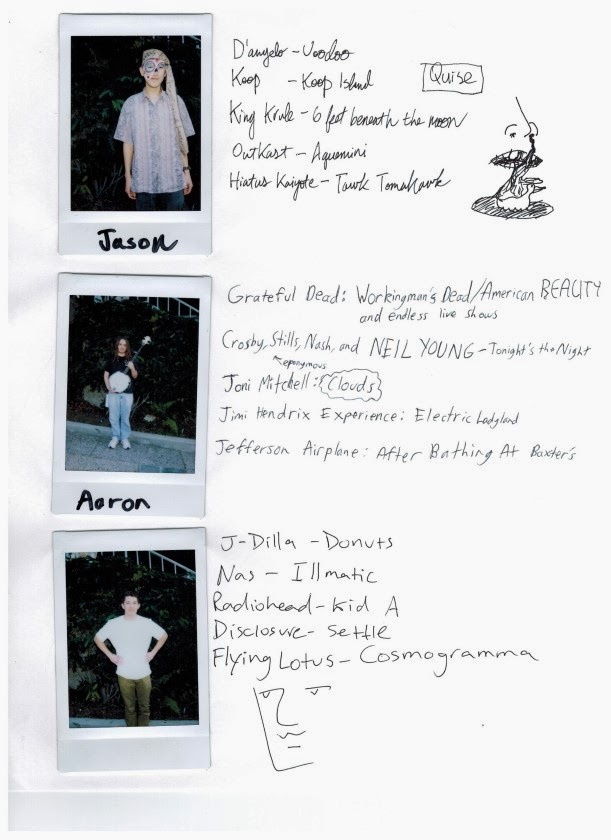 D'angelo - Voodoo
Koop - Koop Island
Quise
King Krule - 6 feet beneath the moon
OutKast - Aquemini
Hiatus Kaiyote - Tawk Tomahawk
Jason
Grateful Dead: Workingman's Dead/American BEAUTY
and endless live shows
Crosby, Stills, Nash, and NEIL YOUNG - Tonight's the Night
eponymous
Joni Mitchell: Clouds
Jimi Hendrix Experience: Electric Ladyland
Jefferson Airplane: After Bathing At Baxter's
Aaron
J-Dilla - Donuts
Nas - Illmatic
Radiohead - Kid A
Disclosure - Settle
Flying Lotus - Cosmogramma